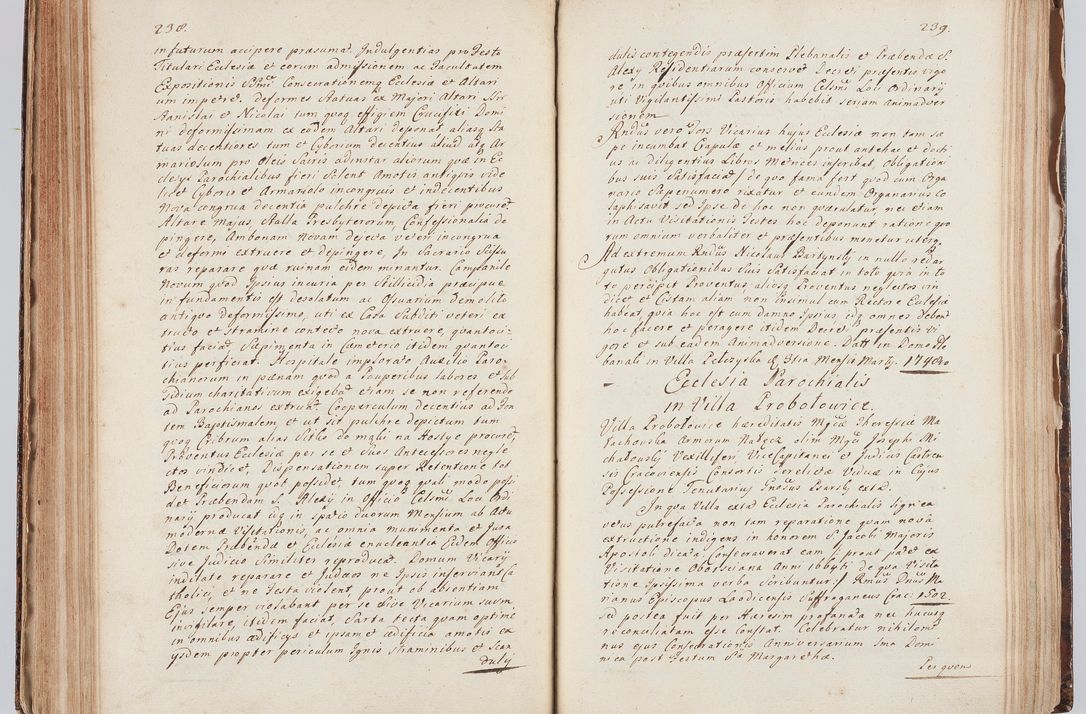 238.
in futurum accipere præsumat. Indulgentias pro Festo
Titulari Ecclesiæ et eorum admissionem ac Facultatem
Expositionis SSmi Consecrationemq Ecclesiæ et Altari
um impetret. deformes Statuas ex Majori Altari
Stanislai et Nicolai tum quoq effigiem Crucifixi Domi
ni deformissimam ex eodem Altari deponat, aliasq Sta
tuas decentiores tum et Cyborium decentius aliud atq Ar
mariolum pro Oleis Sacris ad instar aliorum quæ in Ec
clesys Parochialibus fieri solent Amotis antiquis vide
licet Cyborio et Armariolo incongruis et indecentibus
Nova congrua decentia pulchre depicta fieri procuret
Altare Majus Stalla Presbyterorum Confessionalia de
pingere, Ambonam Novam dejecta veteri incongrua
et deformi extruere et depingere, In Sacrario Scissu
ras reparare quæ ruinam eidem minantur. Campanile
Novum quod Ipsius incuria per Stillicidia præcipue
in fundamentis est desolatum ac Ossuarium Demolito
antiquo deformissimo, uti ex Casa Subditi veteri ex
tructo et Stramine contecto nova extruere, quantoci-
tius faciat Sæpimenta in Cæmeterio itidem quantoci
tius perficiat. Hospitale implorato Auxilio Paro-
chianorum in pænam quod a Pauperibus labores et Sub
sidium charitativum exigebat etiam se non referendo
ad Parochianos extruat. Cooperculum decentius ad Fon
tem Baptismalem, et ut sit pulchre depictum tum
quoq Cribrum alias Sitko do mąki na Hostye procuret,
Proventus Ecclesiæ per se et Suos Antecessores negle
ctos vindicet, Dispensationem super Retentione tot
Beneficiorum quot possidet, tum quoq quali modo possi
det Præbendam S. Alexy in Officio Celsmi Loci Ordi
narij producat idq in spatio duorum Mensium ab Actu
modernæ Visitationis, ac omnia munimenta et Jura
Dotem Præbendæ et Ecclesiæ enucleantia Eidem Officio
sive Judicio Similiter reproducat. Domum Vicarij
indilate reparare et Judæos ne Ipsis inserviant Ca
tholici, et ne Festa violent, prout ob absentiam
Ejus semper violabant per se sive Vicarium suum
invigilare, itidem faciat, Sarta tecta quam optime
in omnibus ædificys et ipsam et ædificia amotis ex
ysdem propter periculum Ignis Straminibus et Scan
dulij
239.
dulis contegendis præsertim Plebanalis et Præbendæ S.
Alexy Residentiarum conservet Decreti præsentis vigo
re in quibus omnibus Officium Celsmi Loci Ordinarij
uti Vigilantissimi Pastoris habebit seriam Animadver
sionem
Rndus vero Dons Vicarius hujus Ecclesiæ non tam sæ
pe incumbat Crapulæ et melius prout antehac et docti
us ac diligentius Libros Metrices inscribat, Obligationi
bus suis Satisfaciat / de quo fama fert quod cum Orga
nario Sæpenumero rixatur et eundem Organarius Co
laphisavit sed Ipse de hoc non quærulatur, nec etiam
in Actu Visitationis Testes hoc deponunt ratione quo
rum omnium verbaliter et præsentibus monetur uterq.
Ad extremum Rndus Nicolaus Bartynski in nullo redar
gutus Obligationibus Suis Satisfaciat in toto quia in to
to percipit Proventus, aliosq Proventus neglectos vin
dicet et Cistam aliam non insimul cum Rectore Ecclesiæ
habeat, quia hoc est cum damno Ipsius idq omnes debent
hoc facere et peragere itidem Decreti præsentis vi
gore et sub eadem Animadversione. Datt in Domo Ple
banali in Villa Pełczyska Mensis Martij. 1748o
Ecclesia Parochialis
in Villa Probołowice.
Villa Probołowice hæreditatis Mgcæ Theresiæ Ma
łachowska Armorum Nałęcz olim Mgci Josephi Mi
chałowskj Vexilliferi, ViceCapitanei et Judicis Castren
sis Cracoviensis Consortis derelictæ Viduæ in Cujus
Possessione Tenutarius Gnosus Psarski extat.
In qua Villa extat Ecclesia Parochialis lignea
vetus putrefacta non tam reparatione quam nová
extructione indigens in honorem S. Jacobi Majoris
Apostoli dicata. Consecraverat eam /: prout patet ex
Visitatione Oborsciana Anni 1661ti de qua Visita
tione Ipsissima verba scribuntur:/ Rmus Dnus Ma
rianus Episcopus Laodicensis Suffraganeus Crac: 1502.
sed postea fuit per Hæresim profanata nec hucusq
reconciliatam esse Constat. Celebratur nihilomi
nus ejus Consecrationis Anniversarium Ima Domi
nica post Festum Stæ Margarethæ.
Per quem